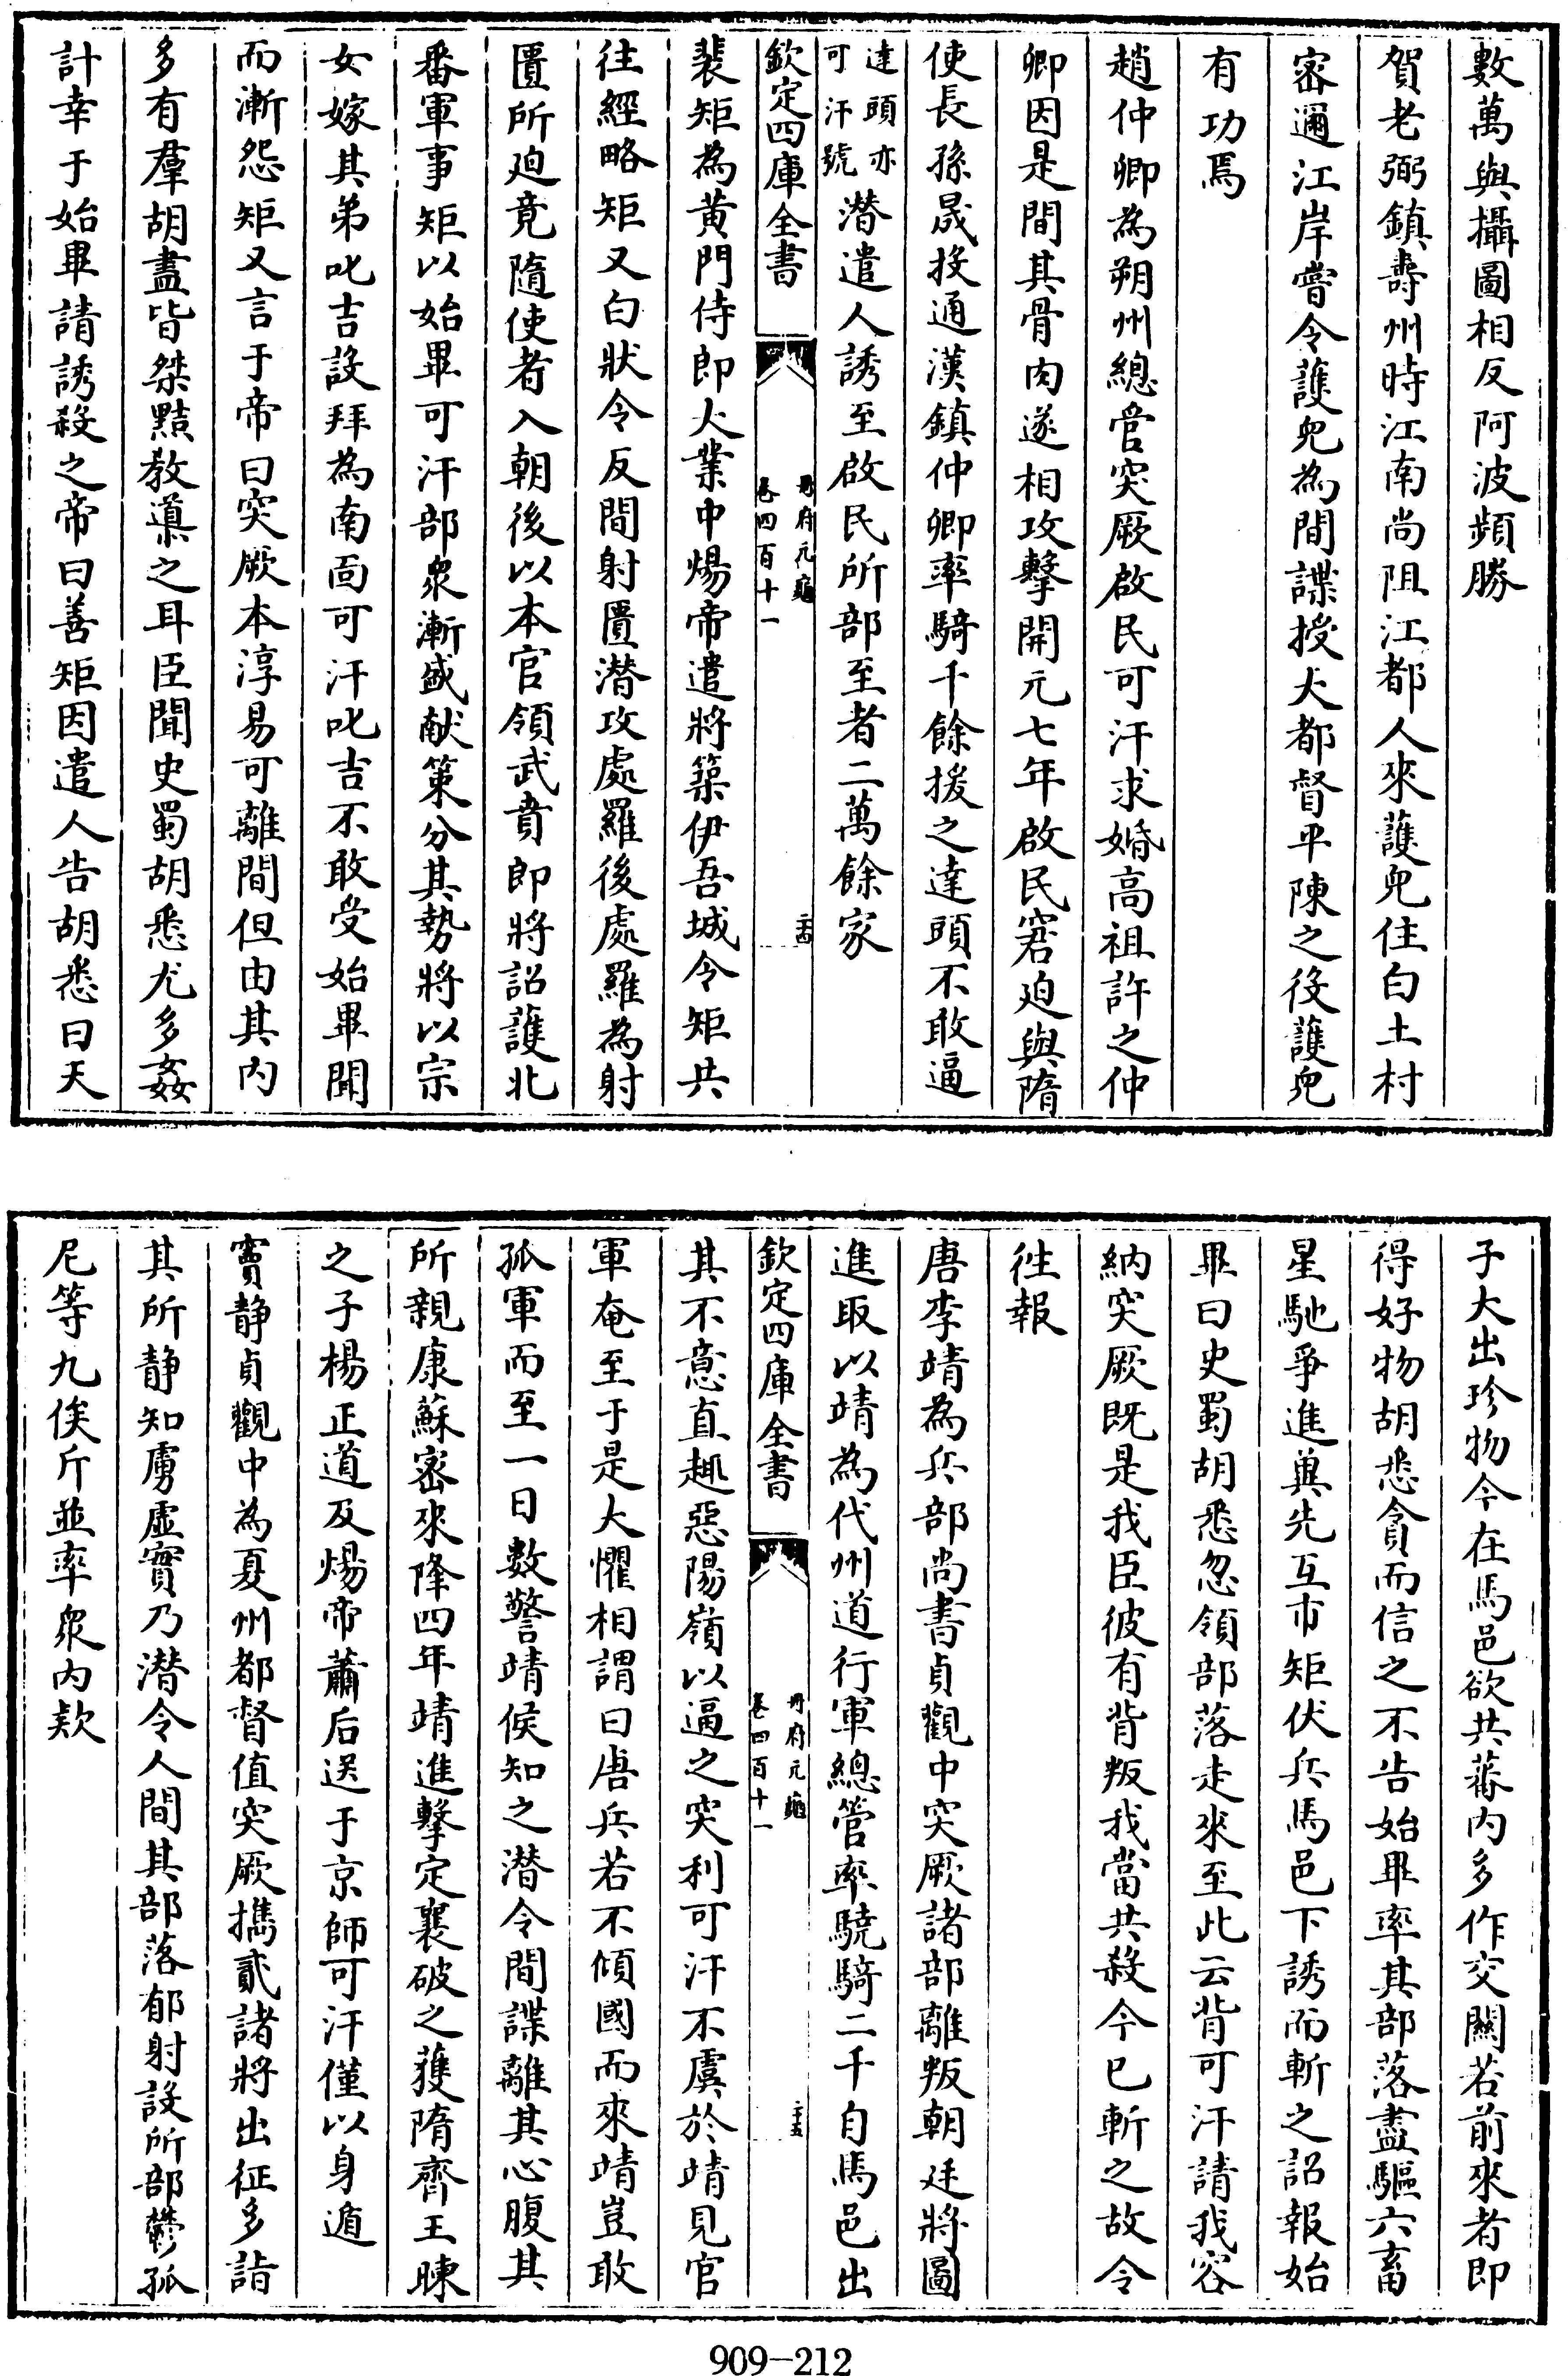 數萬與攝圖相反阿波頻勝
賀老弼鎮壽州時江南尚阻江都人來護兒住白土村
密邇江岸嘗令護兒為間諜授大都督平陳之役護兒
有功焉
趙仲卿為朔州總管突厥啟民可汗求婚高祖許之仲
卿因是間其骨肉遂相攻擊開元七年啟民窘迫與隋
使長孫晟投通漢鎮仲卿率騎千餘援之達頭不敢逼
達頭亦
可汗號潛遣人誘至啟民所部至者二萬餘家
欽定四庫全書
冊府元龜
卷四百十一
二十四
裴矩為黃門侍郎大業中煬帝遣將築伊吾城令矩共
往經略矩又白狀令反間射匱潛攻處羅後處羅為射
匱所廹竟隨使者入朝後以本官領武賁郎將詔護北
番軍事矩以始畢可汗部衆漸盛獻策分其勢將以宗
女嫁其弟叱吉設拜為南面可汗叱吉不敢受始畢聞
而漸怨矩又言于帝曰突厥本淳易可離間但由其内
多有羣胡盡皆桀黠教導之耳臣聞史蜀胡悉尤多姦
計幸于始畢請誘殺之帝曰善矩因遣人告胡悉曰天
子大出珍物今在馬邑欲共蕃内多作交關若前來者即
得好物胡悉貪而信之不告始畢率其部落盡驅六畜
星馳爭進冀先互市矩伏兵馬邑下誘而斬之詔報始
畢曰史蜀胡悉忽領部落走來至此云背可汗請我容
納突厥既是我臣彼有背叛我當共殺今已斬之故令
徃報
唐李靖為兵部尚書貞觀中突厥諸部離叛朝廷將圖
進取以靖為代州道行軍總管率驍騎二千自馬邑出
欽定四庫全書
冊府元龜
卷四百十一
二十五
其不意直趣惡陽嶺以逼之突利可汗不虞於靖見官
軍奄至于是大懼相謂曰唐兵若不傾國而來靖豈敢
孤軍而至一日數警靖候知之潛令間諜離其心腹其
所親康蘇密來降四年靖進擊定襄破之獲隋齊王暕
之子楊正道及煬帝蕭后送于京師可汗僅以身遁
竇靜貞觀中為夏州都督值突厥攜貳諸將出征多詣
其所靜知虜虛實乃潛令人間其部落郁射設所部鬱孤
尼等九俟斤並率衆内欵
909-212